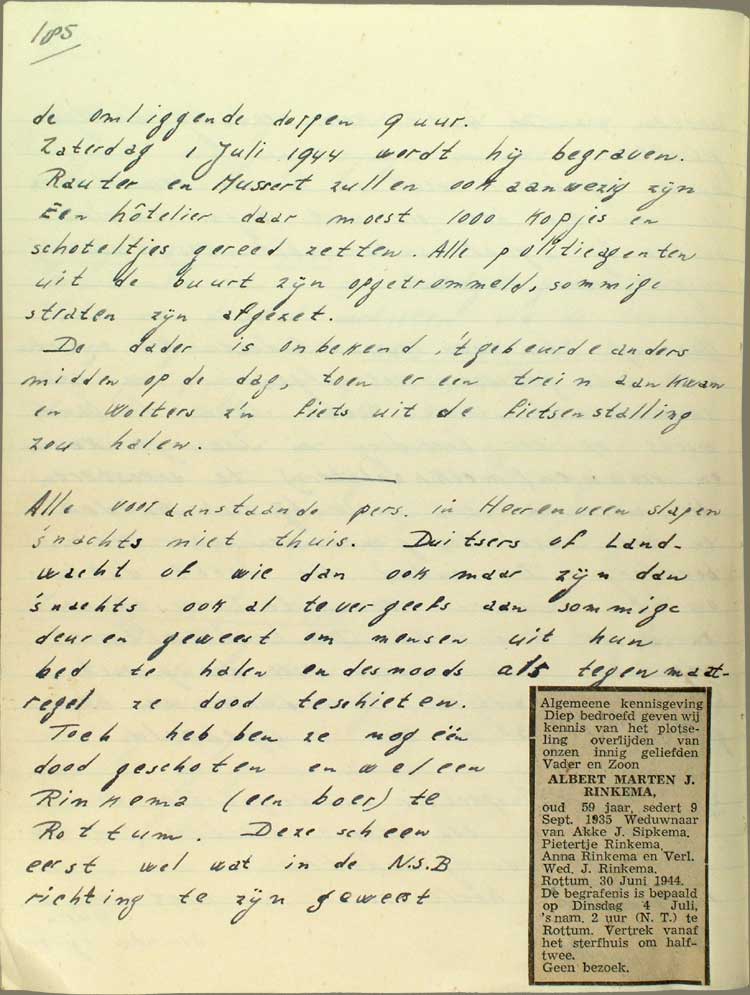 185
de omliggende dorpen 9 uur.
Zaterdag 1 Juli 1944 wordt hij begraven.
Rauter en Mussert zullen ook aanwezig zijn
Een hôtelier daar moest 1000 kopjes en
schoteltjes gereed zetten. Alle politieagenten
uit de buurt zijn opgetrommeld, sommige
straten zijn afgezet.
De dader is onbekend, 't gebeurde anders
midden op de dag, toen er een trein aankwam
en Wolters z'n fiets uit de fietsenstalling
zou halen.
Alle vooraanstaande pers. in Heerenveen slapen
's nachts niet thuis. Duitsers of Land-
wacht of wie dan ook maar zijn dan
's nachts ook al tevergeefs aan sommige
deuren geweest om mensen uit hun
bed te halen en desnoods als tegenmaat-
regel ze dood te schieten.
Toch hebben ze nog één
dood geschoten en wel een
Rinkema (een boer) te
Rottum. Deze scheen
eerst wel wat in de N.S.B
richting te zijn geweest
Algemeene kennisgeving
Diep bedroefd geven wij
kennis van het plotse-
ling overlijden van
onzen innig geliefden
Vader en Zoon
ALBERT MARTEN J.
RINKEMA,
oud 59 jaar, sedert 9
Sept. 1935 Weduwnaar
van Akke J. Sipkema.
Pietertje Rinkema,
Anna Rinkema en Verl.
Wed. J. Rinkema.
Rottum, 30 Juni 1944.
De begrafenis is bepaald
op Dinsdag 4 Juli,
's nam. 2 uur (N. T.) te
Rottum. Vertrek vanaf
het sterfhuis om half-
twee.
Geen bezoek.